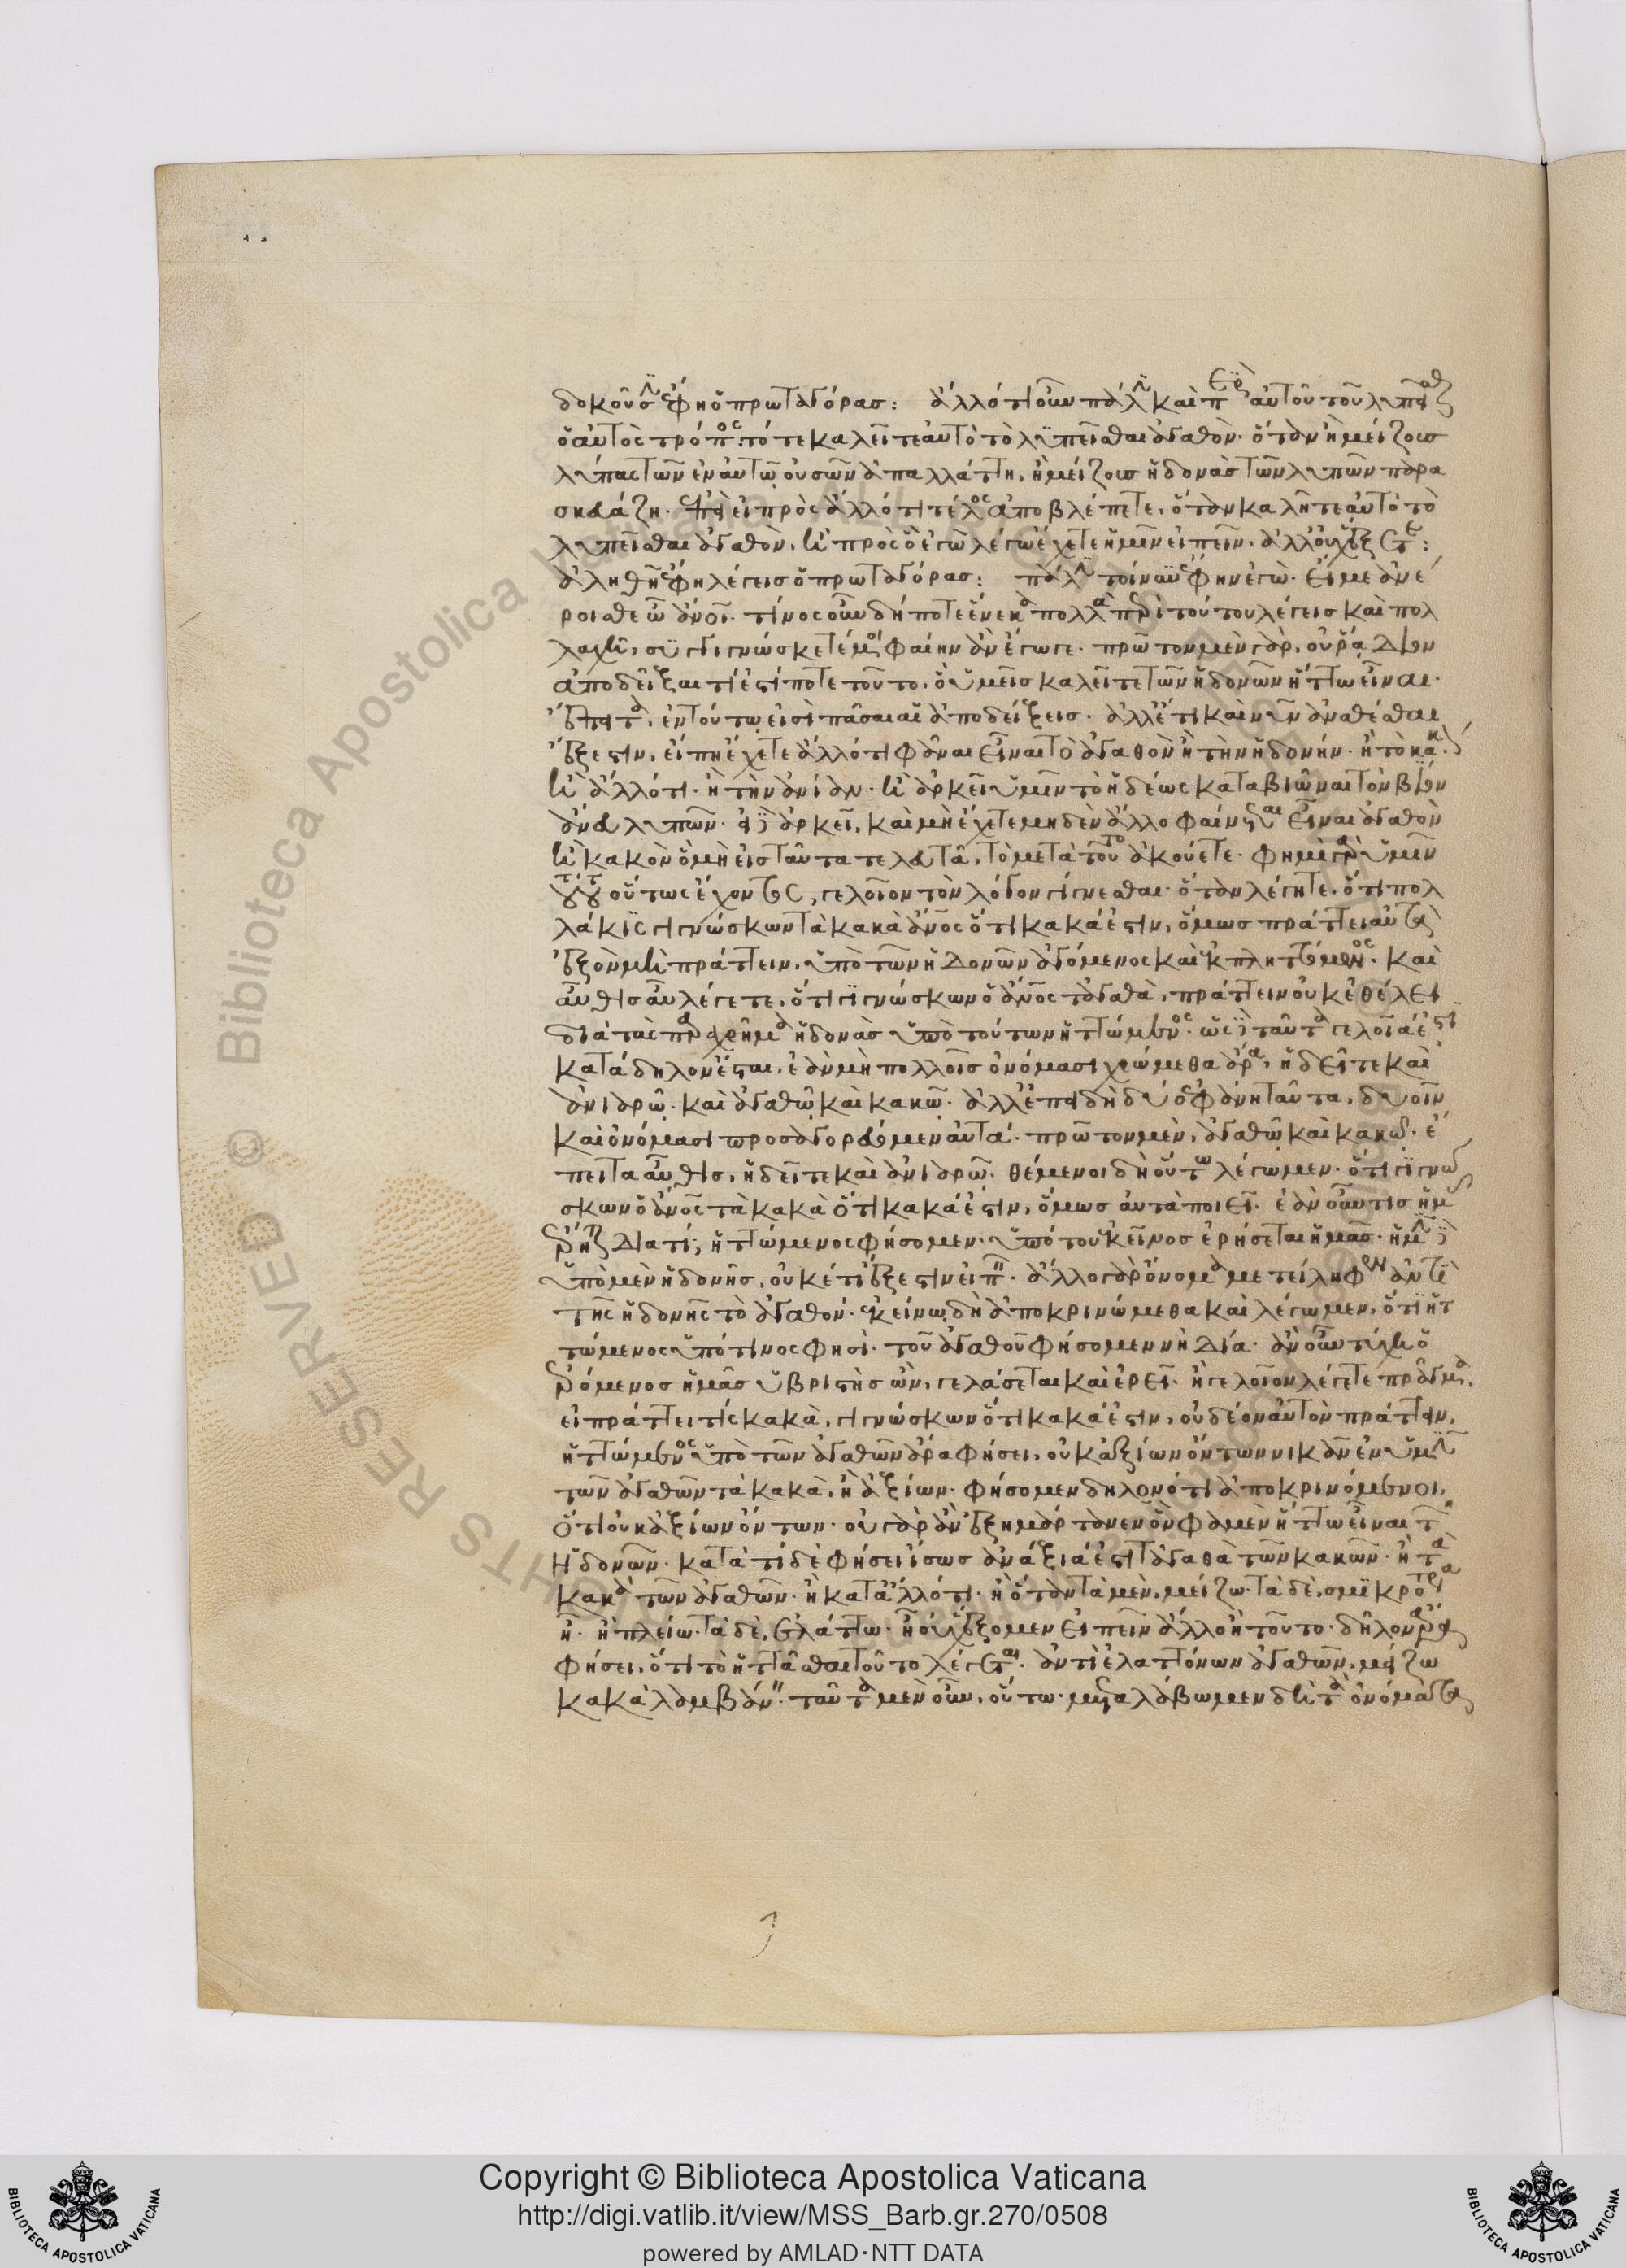 δοκοῦσιν ἔφη ὁ πρωταγόρας: ἄλλό τι οὖν πάλιν καὶ περὶ αὐτοῦ τοῦ λυπεῖσθαι
ὁ αὐτὸς τρόπος· τότε καλεῖτε αὐτὸ τὸ λυπεῖσθαι ἀγαθὸν· ὅταν ἢ μείζους
λύπας τῶν ἐν αὐτῷ οὐσῶν ἀπαλλάττῃ, ἢ μείζους ἡδονὰς τῶν λυπῶν παρα
σκευάζῃ· ἐπεὶ εἰ πρὸς ἄλλό τι τέλος ἀποβλέπετε, ὅταν καλῆτε αὐτὸ τὸ
λυπεῖσθαι ἀγαθὸν, ἢ πρὸς ὃ ἐγὼ λέγω ἔχετε ἡμῖν εἰπεῖν, ἀλλ' οὐχ ἕξετε:
ἀληθῆ ἔφη λέγεις ὁ πρωταγόρας: πάλιν τοίνυν ἔφην ἐγὼ· εἴ με ἀνέ
ροισθε ὦ ἄνοι· τίνος οὖν δήποτε ἕνεκα πολλὰ περὶ τούτου λέγεις καὶ πολ
λαχῆ, συγγιγνώσκετέ μοι φαίην ἂν ἔγωγε· πρῶτον μὲν γὰρ, οὐ ῥάδιον
ἀποδεῖξαι τί ἐστί ποτε τοῦτο, ὃ ὑμεῖς καλεῖτε τῶν ἡδονῶν ἥττω εἶναι·
ἔπειτα, ἐν τούτῳ εἰσὶ πᾶσαι αἱ ἀποδείξεις· ἀλλ' ἔτι καὶ νῦν ἀναθέσθαι
ἔξεστιν, εἴ πη ἔχετε ἄλλό τι φάναι εἶναι τὸ ἀγαθὸν ἢ τὴν ἡδονήν· ἢ τὸ κακὸν
ἢ ἄλλό τι· ἢ τὴν ἀνίαν· ἢ ἀρκεῖ ὑμῖν τὸ ἡδέως καταβιῶναι τὸν βίον
ἄνευ λυπῶν· εἰ δὲ ἀρκεῖ, καὶ μὴ ἔχετε μηδὲν ἄλλο φάναι εἶναι ἀγαθὸν
ἢ κακὸν ὃ μὴ εἰς ταῦτα τελευτᾶ, τὸ μετὰ τοῦτο ἀκούετε· φημὶ γὰρ ὑμῖν
τούτου οὕτως ἔχοντος, γελοῖον τὸν λόγον γίγνεσθαι· ὅταν λέγητε, ὅτι πολ
λάκις γιγνώσκων τὰ κακὰ ἄνος ὅτι κακά ἐστιν, ὅμως πράττει αὐτὰ
ἐξὸν μὴ πράττειν, ὑπὸ τῶν ἡδονῶν ἀγόμενος καὶ ἐκπληττόμενος· καὶ
αὖθις αὖ λέγετε, ὅτι γιγνώσκων ὁ ἄνος τἀγαθὰ, πράττειν οὐκ ἐθέλει
διὰ τὰς παραχρῆμα ἡδονὰς ὑπὸ τούτων ἡττώμενος· ὡς δὲ ταῦτα γελοῖά ἐστι
κατάδηλον ἔσται, ἐὰν μὴ πολλοῖς ὀνόμασι χρώμεθα ἄρα, ἡδεῖ τε καὶ
ἀνιαρῷ· καὶ ἀγαθῷ καὶ κακῷ· ἀλλ' ἐπειδὴ δύο ἐφάνη ταῦτα, δυοῖν
καὶ ὀνόμασι προσαγορεύωμεν αὐτά· πρῶτον μὲν, ἀγαθῷ καὶ κακῷ· ἔ
πειτα αὖθις, ἡδεῖ τε καὶ ἀνιαρῷ· θέμενοι δὴ οὕτω λέγωμεν· ὅτι γιγνώ
σκων ὁ ἄνος τὰ κακὰ ὅτι κακά ἐστιν, ὅμως αὐτὰ ποιεῖ· ἐὰν οὖν τις ἡμ
ἔρηται διατί; ἡττώμενος φήσομεν· ὑπὸ τοῦ ἐκεῖνος ἐρήσεται ἡμᾶς· ἡμῖν δὲ
ὑπὸ μὲν ἡδονῆς, οὐκέτι ἔξεστιν εἰπεῖν· ἄλλο γὰρ ὄνομα μετείληφεν ἀντὶ
τῆς ἡδονῆς τὸ ἀγαθόν· ἐκείνῳ δὴ ἀποκρινώμεθα καὶ λέγωμεν, ὅτι ἡτ
τώμενος ὑπὸ τίνος φησὶ· τοῦ ἀγαθοῦ φήσομεν νὴ Δία· ἂν οὖν τύχῃ ὁ
ἐρόμενος ἡμᾶς ὑβριστὴς ὢν, γελάσεται καὶ ἐρεῖ· ἦ γελοῖον λέγετε πρᾶγμα,
εἰ πράττει τίς κακὰ, γιγνώσκων ὅτι κακά ἐστιν, οὐ δέον αὐτὸν πράττειν,
ἡττώμενος ὑπὸ τῶν ἀγαθῶν ἆρα φήσει, οὐκ ἀξίων ὄντων νικᾶν ἐν ὑμῖν
τῶν ἀγαθῶν τὰ κακὰ, ἢ ἀξίων· φήσομεν δηλονότι ἀποκρινόμενοι,
ὅτι οὐκ ἀξίων ὄντων· οὐ γὰρ ἂν ἐξημάρτανεν ὃν φαμὲν ἥττω εἶναι τῶν
ἡδονῶν· κατὰ τί δὲ φήσει ἴσως ἀνάξιά ἐστι τἀγαθὰ τῶν κακῶν· ἢ τὰ
κακὰ τῶν ἀγαθῶν· ἢ κατ' ἄλλό τι· ἢ ὅταν τὰ μὲν, μείζω· τὰ δὲ, σμικρότερα
ᾖ· ἢ πλείω· τὰ δὲ, ἐλάττω· ᾖ οὐχ ἕξομεν εἰπεῖν ἄλλο ἢ τοῦτο· δῆλον ἄρα
φήσει, ὅτι τὸ ἡττᾶσθαι τοῦτο λέγεται· ἀντὶ ἐλαττόνων ἀγαθῶν, μείζω
κακὰ λαμβάνειν· ταῦτα μὲν οὖν, οὕτω· μεταλάβωμεν δὴ τὰ ὀνόματα
Copyright © Biblioteca Apostolica Vaticana
http://digi.vatlib.it/view/MSS_Barb.gr.270/0508
powered by AMLAD·NTT DATA